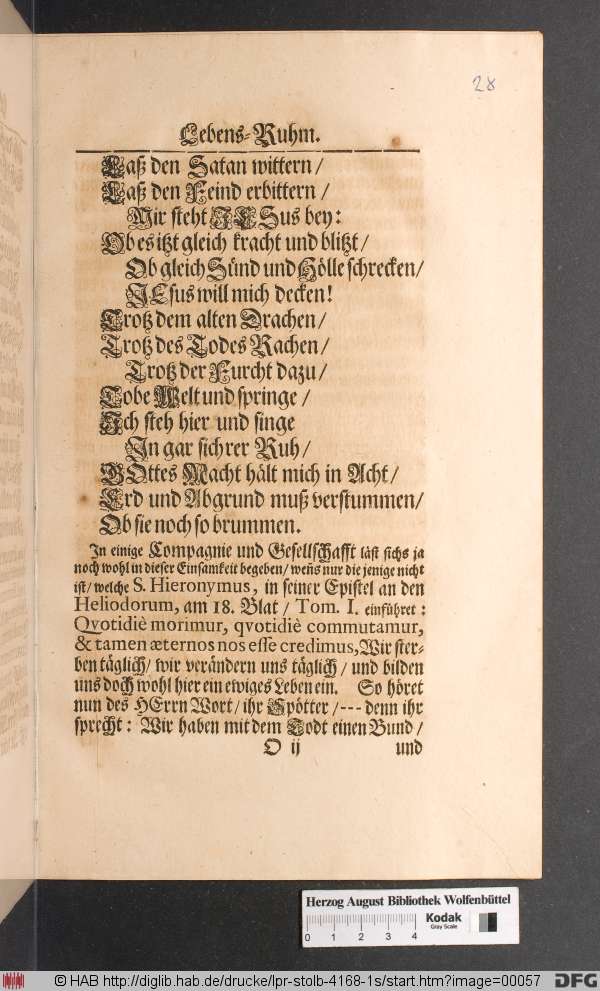 28
Lebens-Ruhm.
Laß den Satan wittern /
Laß den Feind erbittern /
Mir steht JESus bey:
Ob es itzt gleich kracht und blitzt /
Ob gleich Sünd und Hölle schrecken /
JEsus will mich decken!
Trotz dem alten Drachen /
Trotz des Todes Rachen /
Trotz der Furcht dazu /
Tobe Welt und springe /
Ich steh hier und singe
In gar sichrer Ruh /
GOttes Macht hält mich in Acht /
Erd und Abgrund muß verstummen /
Ob sie noch so brummen.
In einige Compagnie und Gesellschafft läst sichs ja
noch wohl in dieser Einsamkeit begeben / weñs nur die jenige nicht
ist / welche S. Hieronymus, in seiner Epistel an den
Heliodorum, am 18. Blat / Tom. I. einführet:
Qvotidiè morimur, qvotidiè commutamur,
& tamen æternos nos esse credimus, Wir ster-
ben täglich / wir verändern uns täglich / und bilden
uns doch wohl hier ein ewiges Leben ein. So höret
nun des HErrn Wort / ihr Spötter / --- denn ihr
sprecht: Wir haben mit dem Todt einen Bund /
O ij und
Herzog August Bibliothek Wolfenbüttel
0 1 2 3 4 Kodak Gray Scale
© HAB http://diglib.hab.de/drucke/lpr-stolb-4168-1s/start.htm?image=00057 DFG